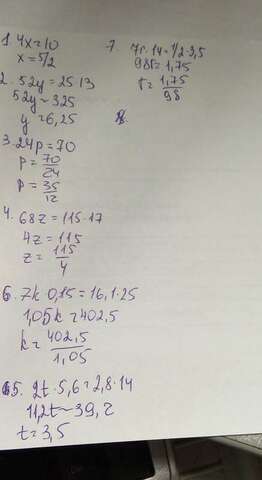 1. 4x=10
x=5/2
2. 52y=25·13
52y=325
y=6,25
3. 24p=70
p=70/24
p=35/12
4. 68z=115·17
4z=115
z=115/4
6. 7k·0,15=16,1·25
1,05k=402,5
k=402,5/1,05
5. 2t·5,6=2,8·14
11,2t=39,2
t=3,5
7. 7r·14=1/2·3,5
98r=1,75
r=1,75/98
8.